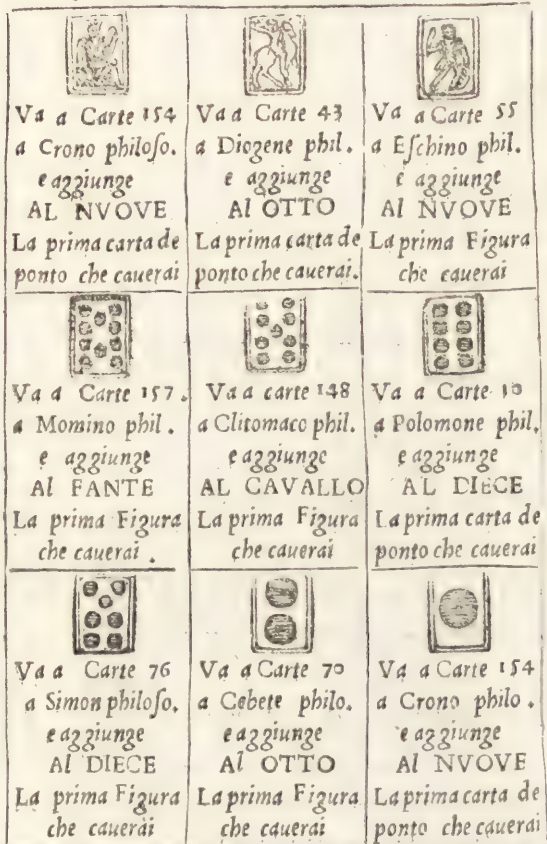 Va a Carte 154
a Crono philoſo.
e aggiunge
AL NVOVE
La prima carta de
ponto che cauerai
Va a Carte 43
a Diogene phil.
e aggiunge
Al OTTO
La prima carta de
ponto che cauerai.
Va a Carte 55
a Eſchino phil.
e aggiunge
Al NVOVE
La prima Figura
che cauerai
Va a Carte 157.
a Momino phil.
e aggiunge
Al FANTE
La prima Figura
che cauerai.
Va a carte 148
a Clitomaco phil.
e aggiunge
AL CAVALLO
La prima Figura
che cauerai
Va a Carte
a Polomone phil.
e aggiunge
AL DIECE
La prima carta de
ponto che cauerai
Va a Carte 76
a Simon philoſo.
e aggiunge
Al DIECE
La prima Figura
che cauerai
Va a Carte 70
a Cebete philo.
e aggiunge
Al OTTO
La prima Figura
che cauerai
Va a Carte 154
a Crono philo.
e aggiunge
Al NVOVE
La prima carta de
ponto che cauerai